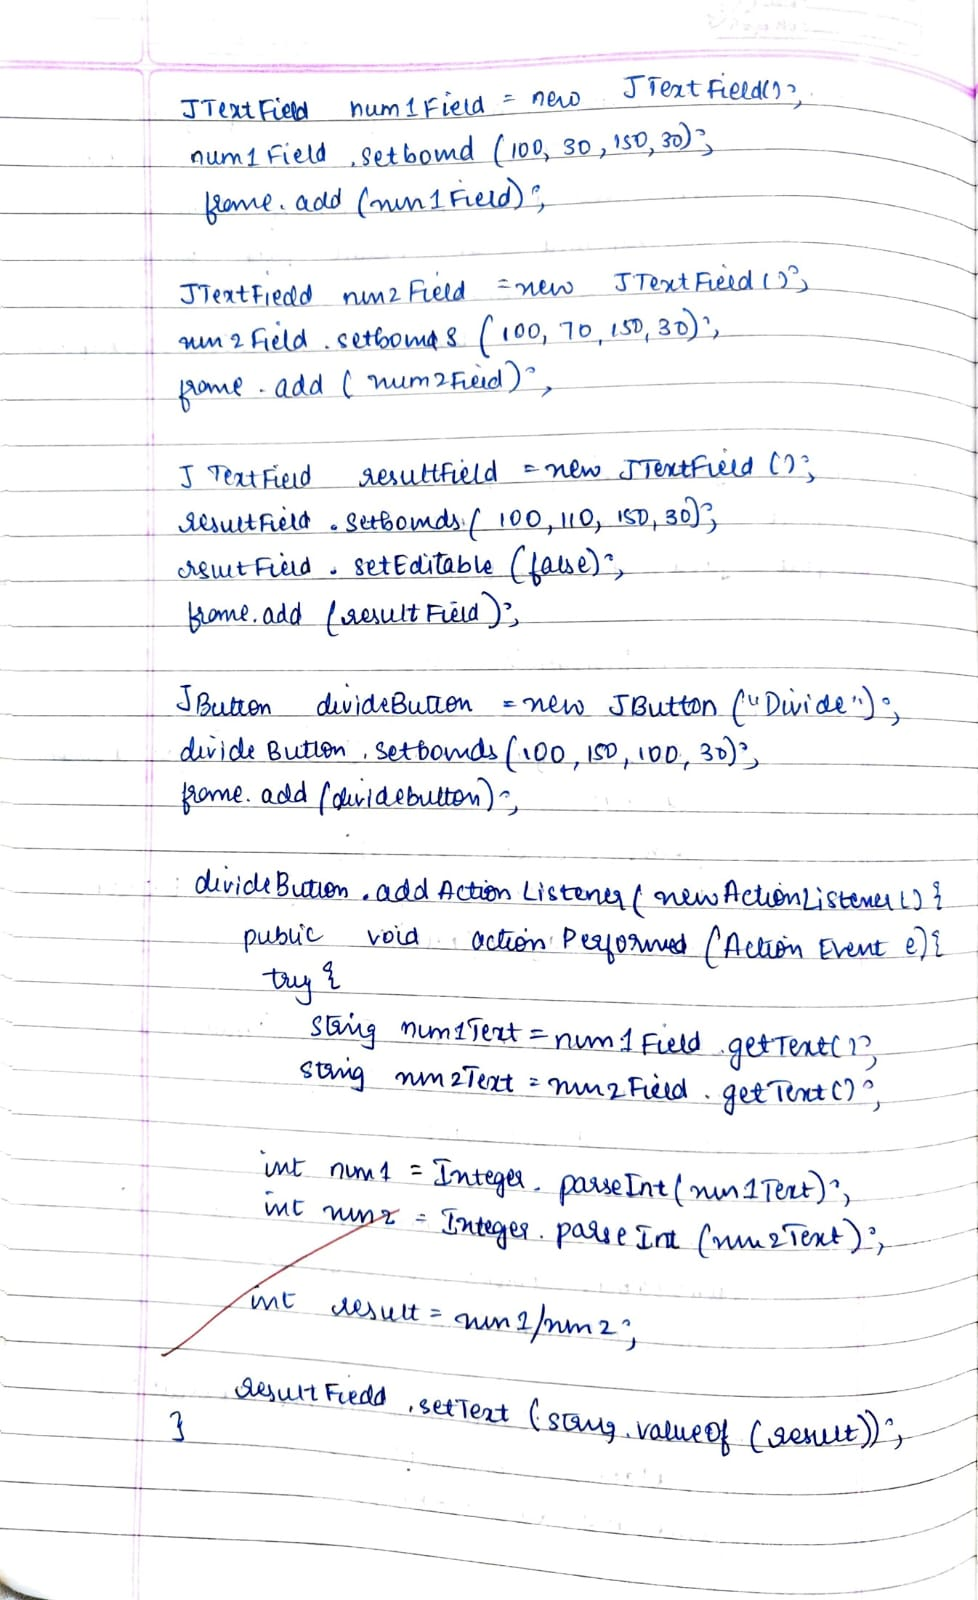 JTextField num1Field = new JTextField();
num1Field.setbomd (100, 30, 150, 30);
frome.add (num1Field);
JTextFiedd num2Field = new JTextField();
num2Field.setbomds (100, 70, 150, 30);
frome.add (num2Field);
JTextField resultField = new JTextField();
resultField.setbomds (100, 110, 150, 30);
resultField.setEditable (false);
frome.add (resultField);
JButton divideButton = new JButton ("Divide");
divideButton.setbomds (100, 150, 100, 30);
frome.add (dividebutton);
divideButton.addActionListener( newActionListener() {
public void actionPerformed (Action Event e){
try {
string num1Text = num1Field.getText();
string num2Text = num2Field.getText();
int num1 = Integer.parseInt(num1Text);
int num2 = Integer.parseInt (num2Text);
int result = num1/num2;
resultFiedd.setText (string.valueOf (result));
}